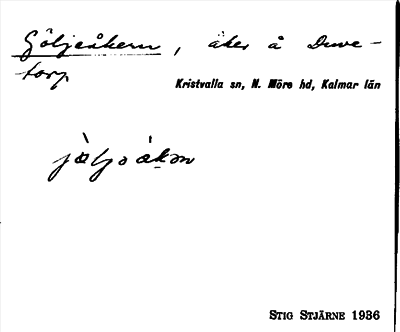 Göljeåkern, åker å Duve-
torp.
Kristvalla sn, N. Möre hd, Kalmar län
STIG STJÄRNE 1936